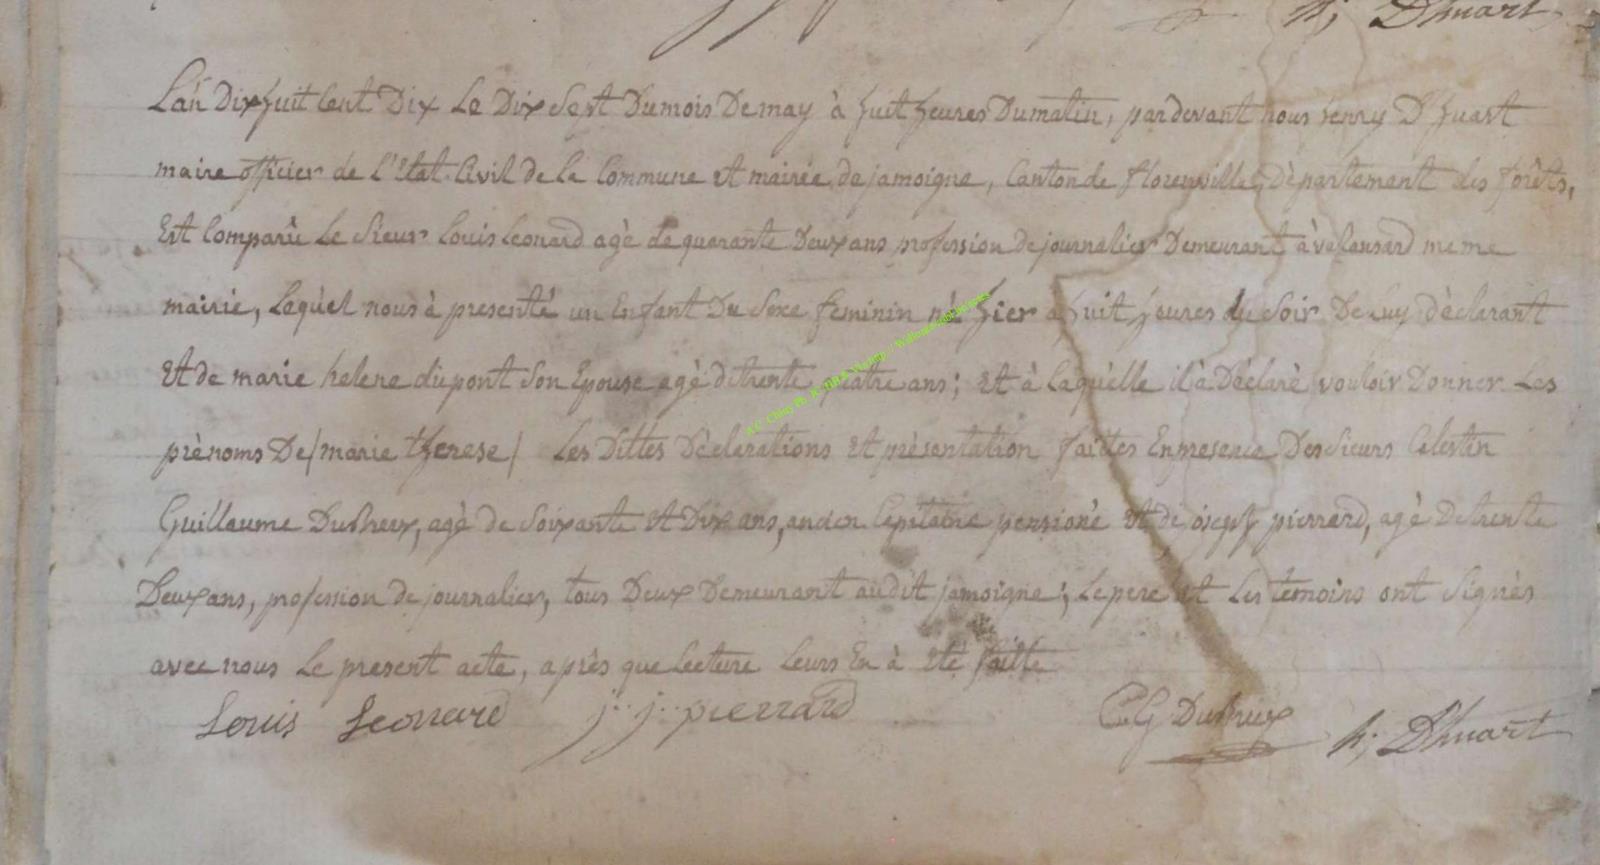 h; Dhuart
L'an Dix huit Cent Dix Le Dix Sept Du mois De may à huit heures Du matin, pardevant nous henry D'huart
maire officier de L'Etat Civil de La Commune et mairie de jamoigne, Canton de florenville, Département des forêts,
Est Comparû Le Sieur Louis Leonard agè de quarante Deux ans profession de journalier Demeurant à valansard meme
mairie, Laquèl nous à presenté un Enfant Du Sexe feminin né hier à huit heures du Soir De Luy dèclarant
Et de marie helene dupont Son Epouse agè de trente quatre ans; et à Laquèlle il à Dèclarè vouloir Donner Les
prènoms De / marie therese / Les Dittes Dèclarations et prèsentation faittes En presence Des Sieurs Celestin
Guillaume , agè de Soixante et Dix ans, ancien Capitaine pensioné et de joseph pierrard, agè De trente
Deux ans, profession de journalier, tous Deux Demeurant audit jamoigne; Le pere et Les temoins ont Signès
avec nous Le present acte, après que Lecture Leurs En à eté faitte
Louis Leonard j: j: pierrard C G h; Dhuart